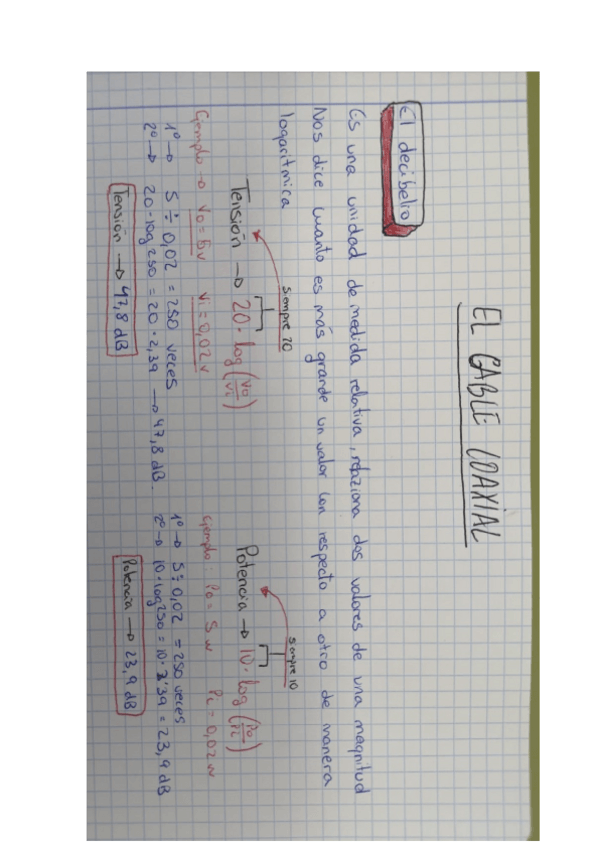 EL CABLE COAXIAL
El decibelio
Es una unidad de medida relativa, relaziona dos valores de una magnitud
Nos dice cuanto es más grande un valor con respecto a otro de manera
logaritmica
siempre 20
Tensión → 20 · log (Vo/Vi)
Ejemplo → Vo = 5v Vi = 0,02v
1º → 5 ÷ 0,02 = 250 veces
2º → 20 · log 250 = 20 · 2,39 → 47,8 dB.
Tensión → 47,8 dB
siempre 10
Potencia → 10 · log (Po/Pi)
ejemplo: Po = 5w Pi = 0,02w
1º → 5 ÷ 0,02 = 250 veces
2º → 10 · log 250 = 10 · 2'39 = 23,9 dB
Potencia → 23,9 dB